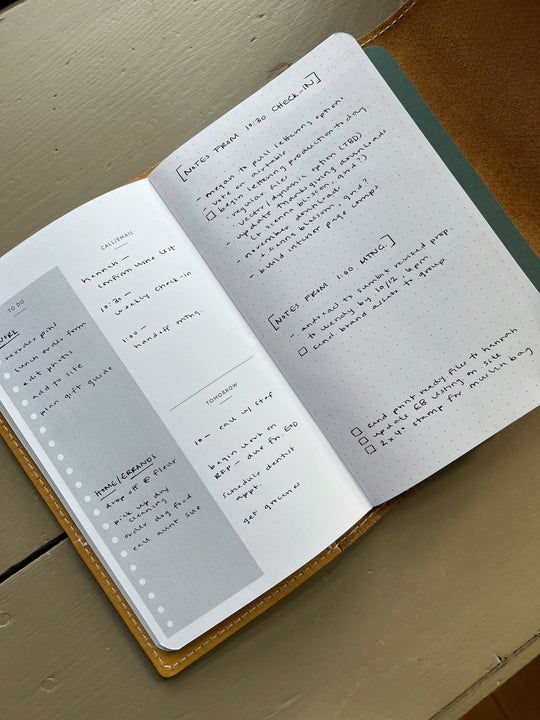 TO DO
WORK
reorder pens
lunch order form
edit photos
add to site
plan gift guide
HOME/ERRANDS
drop off @ fleur
pick up dry
cleaning
order dog food
call aunt sue
CALL/EMAIL
hannah —
confirm wine list
10:30 —
weekly check-in
1:00 —
handoff mtng.
TOMORROW
10 — call w/ stef
begin work on
RFP — due fri. EOD
schedule dentist
appt.
get groceries
[NOTES FROM 10:30 CHECK-IN]
- megan to pull lettering options
vote on airtable
begin lettering production today
- regular file
- vector/dynamic option (TBD)
- update thanksgiving downloads
(+ sienna blossom, grid?)
- november download
+ sienna blossom, grid?
- build interior page comps
[NOTES FROM 1:00 MTNG.]
- andrea to sumbit revised prop.
to wendy by 10/12 6pm
send brand assets to group
send print ready files to hannah
update EB listing on site
2x4" stamp for muslin bag